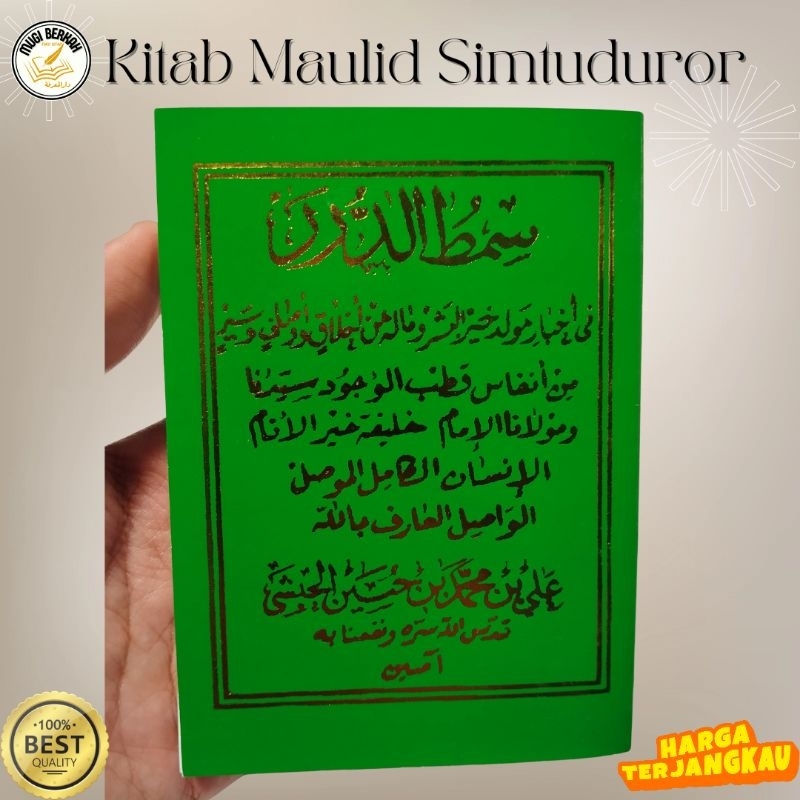 MUGI BERKAH
Kitab Maulid Simtuduror
سِمْطُ الدُّرَرْ
فى أخبار مَولد خير البشر وماله عن أخلاق وأوصاف وسير
مِن أنفاس قطب الوجود سيدنا
ومولانا الإمام خليفة خير الأنام
الإنسان الكامل الموصل
الواصل العارف بالله
علي بن محمد بن حسين الحبشي
قدس الله سره ونفعنا به
آمين
100%
BEST
QUALITY
HARGA
TERJANGKAU